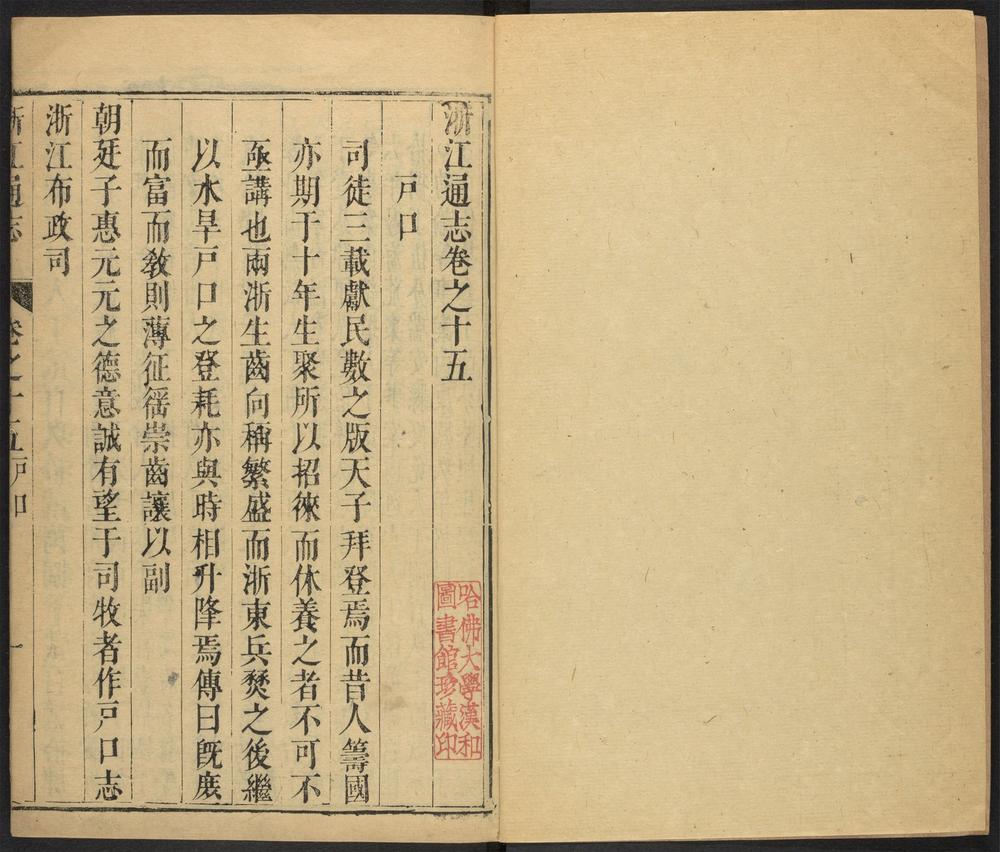 浙江通志卷之十五
戸口
司徒三載獻民數之版天子拜登焉而昔人籌國
亦期于十年生聚所以招徠而休養之者不可不
亟講也兩浙生齒向稱繁盛而浙東兵燹之後繼
以水旱戸口之登耗亦與時相升降焉傳曰既庶
而富而敎則薄征徭崇齒讓以副
朝廷子惠元元之德意誠有望于司牧者作戸口志
浙江布政司
浙江通志 卷之十五戸口 一
哈佛大學漢和
圖書館珍藏印